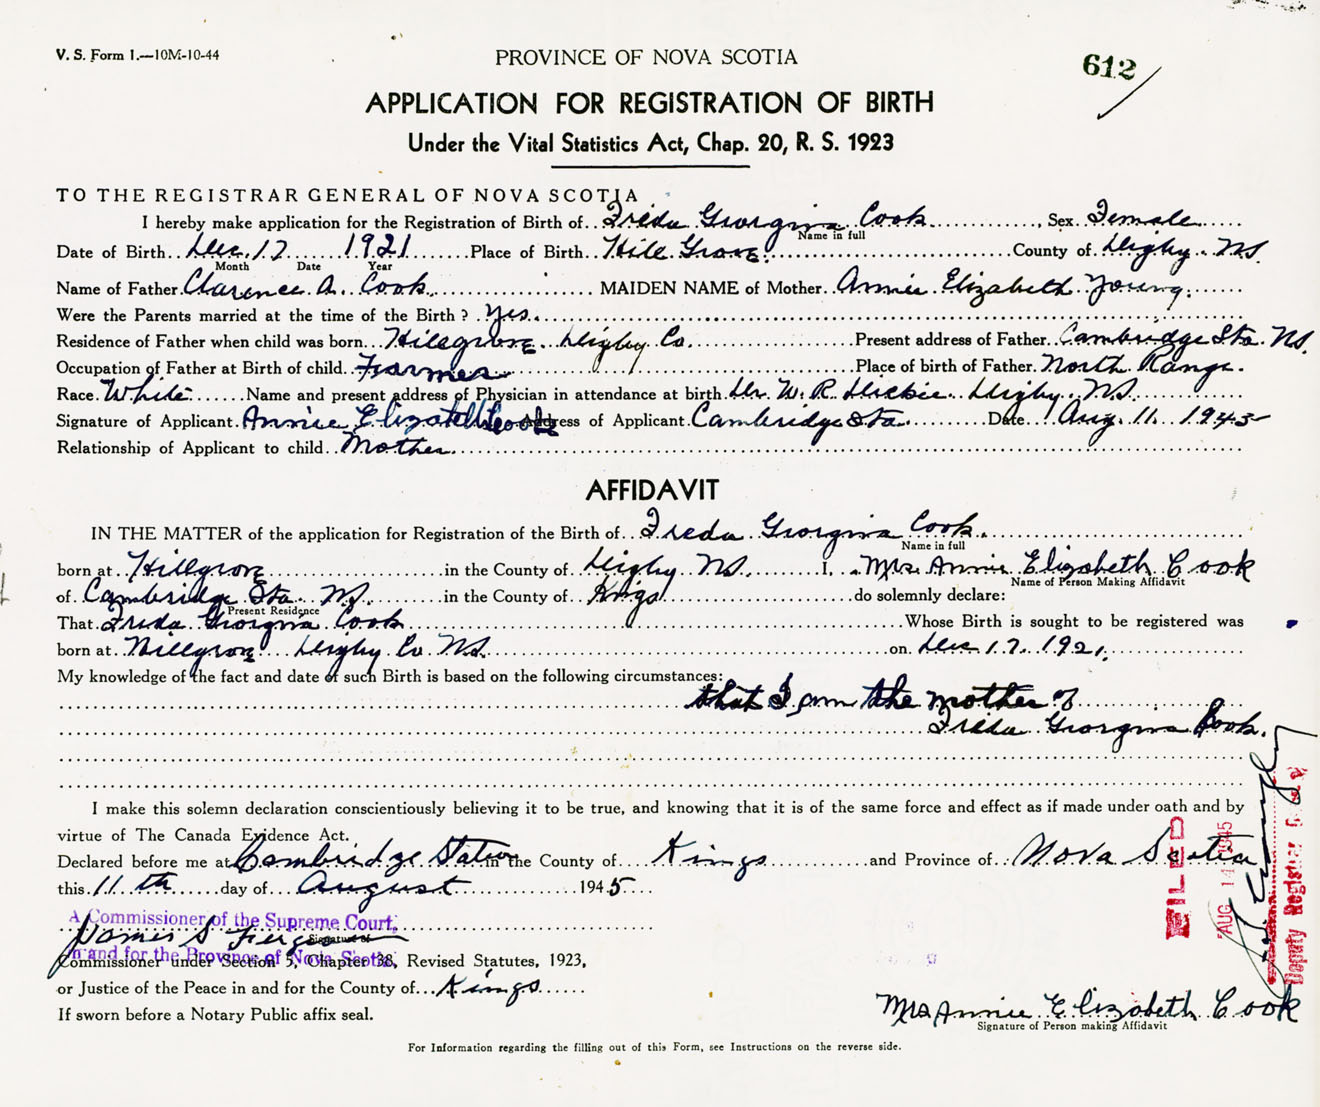 V. S. Form 1.—10M-10-44
PROVINCE OF NOVA SCOTIA
612
APPLICATION FOR REGISTRATION OF BIRTH
Under the Vital Statistics Act, Chap. 20, R. S. 1923
TO THE REGISTRAR GENERAL OF NOVA SCOTIA
I hereby make application for the Registration of Birth of Freda Georgina Cook, Sex Female
Name in full
Date of Birth Dec. 17 1921 Place of Birth Hill Grove County of Digby NS.
Month Date Year
Name of Father Clarence A. Cook MAIDEN NAME of Mother Annie Elizabeth Young.
Were the Parents married at the time of the Birth? Yes.
Residence of Father when child was born Hillgrove Digby Co. Present address of Father Cambridge Sta. NS.
Occupation of Father at Birth of child Farmer Place of birth of Father North Range.
Race White Name and present address of Physician in attendance at birth Dr. W. R. Dickie Digby NS.
Signature of Applicant Annie Elizabeth Cook Address of Applicant Cambridge Sta. Date Aug. 11. 1945
Relationship of Applicant to child Mother.
AFFIDAVIT
IN THE MATTER of the application for Registration of the Birth of Freda Georgina Cook.
Name in full
born at Hillgrove in the County of Digby NS. I, Mrs. Annie Elizabeth Cook
Name of Person Making Affidavit
of Cambridge Sta. NS. in the County of Kings do solemnly declare:
Present Residence
That Freda Georgina Cook Whose Birth is sought to be registered was
born at Hillgrove Digby Co. NS. on Dec 17. 1921.
My knowledge of the fact and date of such Birth is based on the following circumstances:
that I am the mother of
Freda Georgina Cook.
I make this solemn declaration conscientiously believing it to be true, and knowing that it is of the same force and effect as if made under oath and by
virtue of The Canada Evidence Act.
Declared before me at Cambridge Station in the County of Kings and Province of Nova Scotia
this 11th day of August 1945
A Commissioner of the Supreme Court,
James S.
Signature of
in and for the Province of Nova Scotia
Commissioner under Section 5, Chapter 38, Revised Statutes, 1923,
or Justice of the Peace in and for the County of Kings
If sworn before a Notary Public affix seal.
Mrs Annie Elizabeth Cook
Signature of Person making Affidavit
For Information regarding the filling out of this Form, see Instructions on the reverse side.
FILED
AUG 14 1945
Deputy Registrar